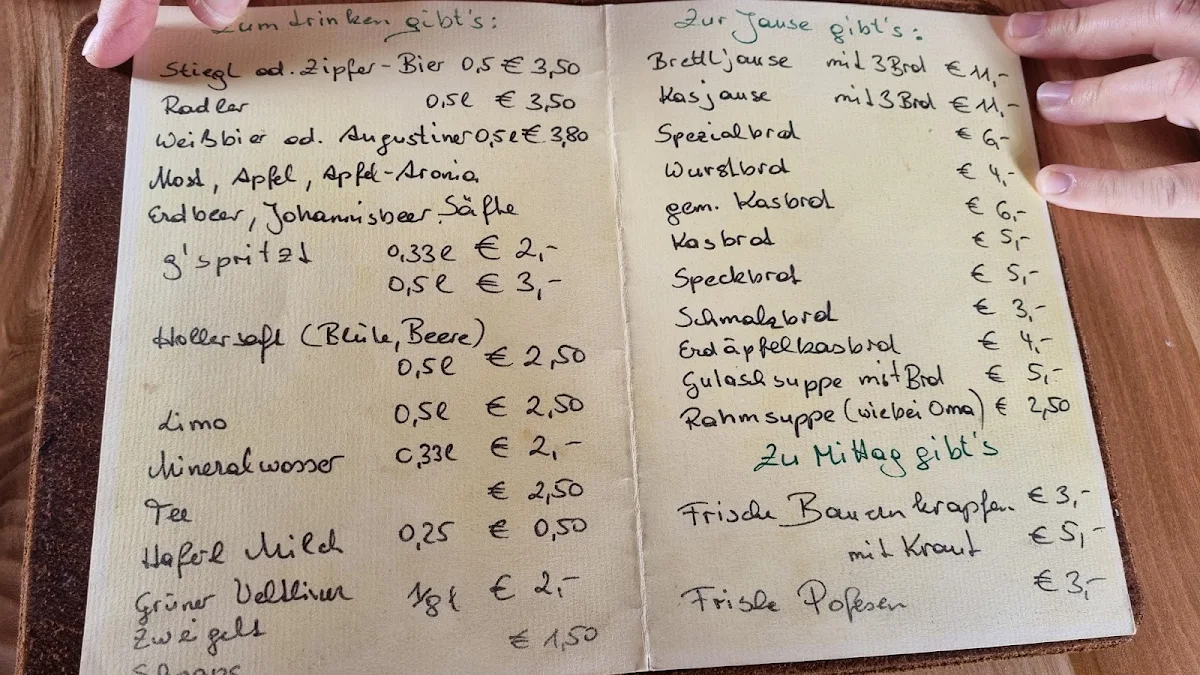 Zum trinken gibt's:
Stiegl od. Zipfer-Bier 0,5 € 3,50
Radler 0,5l € 3,50
Weißbier od. Augustiner 0,5l € 3,80
Most, Apfel, Apfel-Aronia
Erdbeer, Johannisbeer Säfte
g'spritzt 0,33l € 2,-
0,5l € 3,-
Hollersaft (Blüte, Beere)
0,5l € 2,50
Limo 0,5l € 2,50
Mineralwasser 0,33l € 2,-
Tee € 2,50
Haferl Milch 0,25 € 0,50
Grüner Veltliner 1/8l € 2,-
Zweigelt
€ 1,50
Schnaps
Zur Jause gibt's:
Brettljause mit 3 Brot € 11,-
Kasjause mit 3 Brot € 11,-
Spezialbrot € 6,-
Wurstbrot € 4,-
gem. Kasbrot € 6,-
Kasbrot € 5,-
Speckbrot € 5,-
Schmalzbrot € 3,-
Erdäpfelkasbrot € 4,-
Gulaschsuppe mit Brot € 5,-
Rahmsuppe (wie bei Oma) € 2,50
Zu Mittag gibt's
Frische Bauernkrapfen € 3,-
mit Kraut € 5,-
Frische Pofesen € 3,-